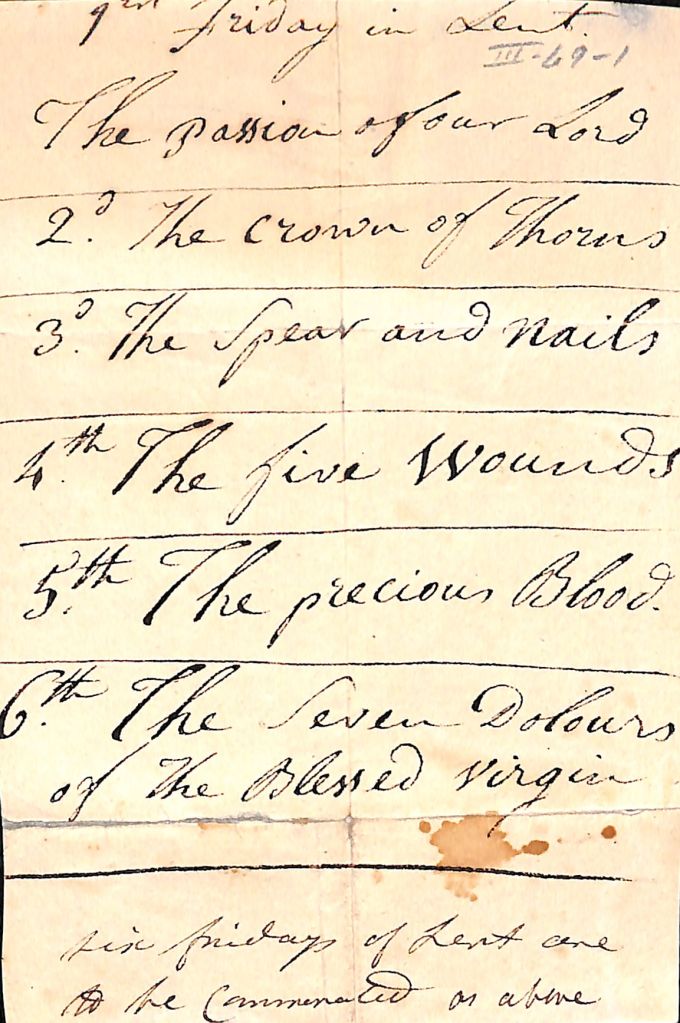 1rst Friday in Lent.
III-69-1
The passion of our Lord
2d. The Crown of Thorns
3d. The Spear and Nails
4th. The five Wounds
5th. The precious Blood.
6th. The Seven Dolours
of the Blessed Virgin
six fridays of Lent are
to be Commerated as above